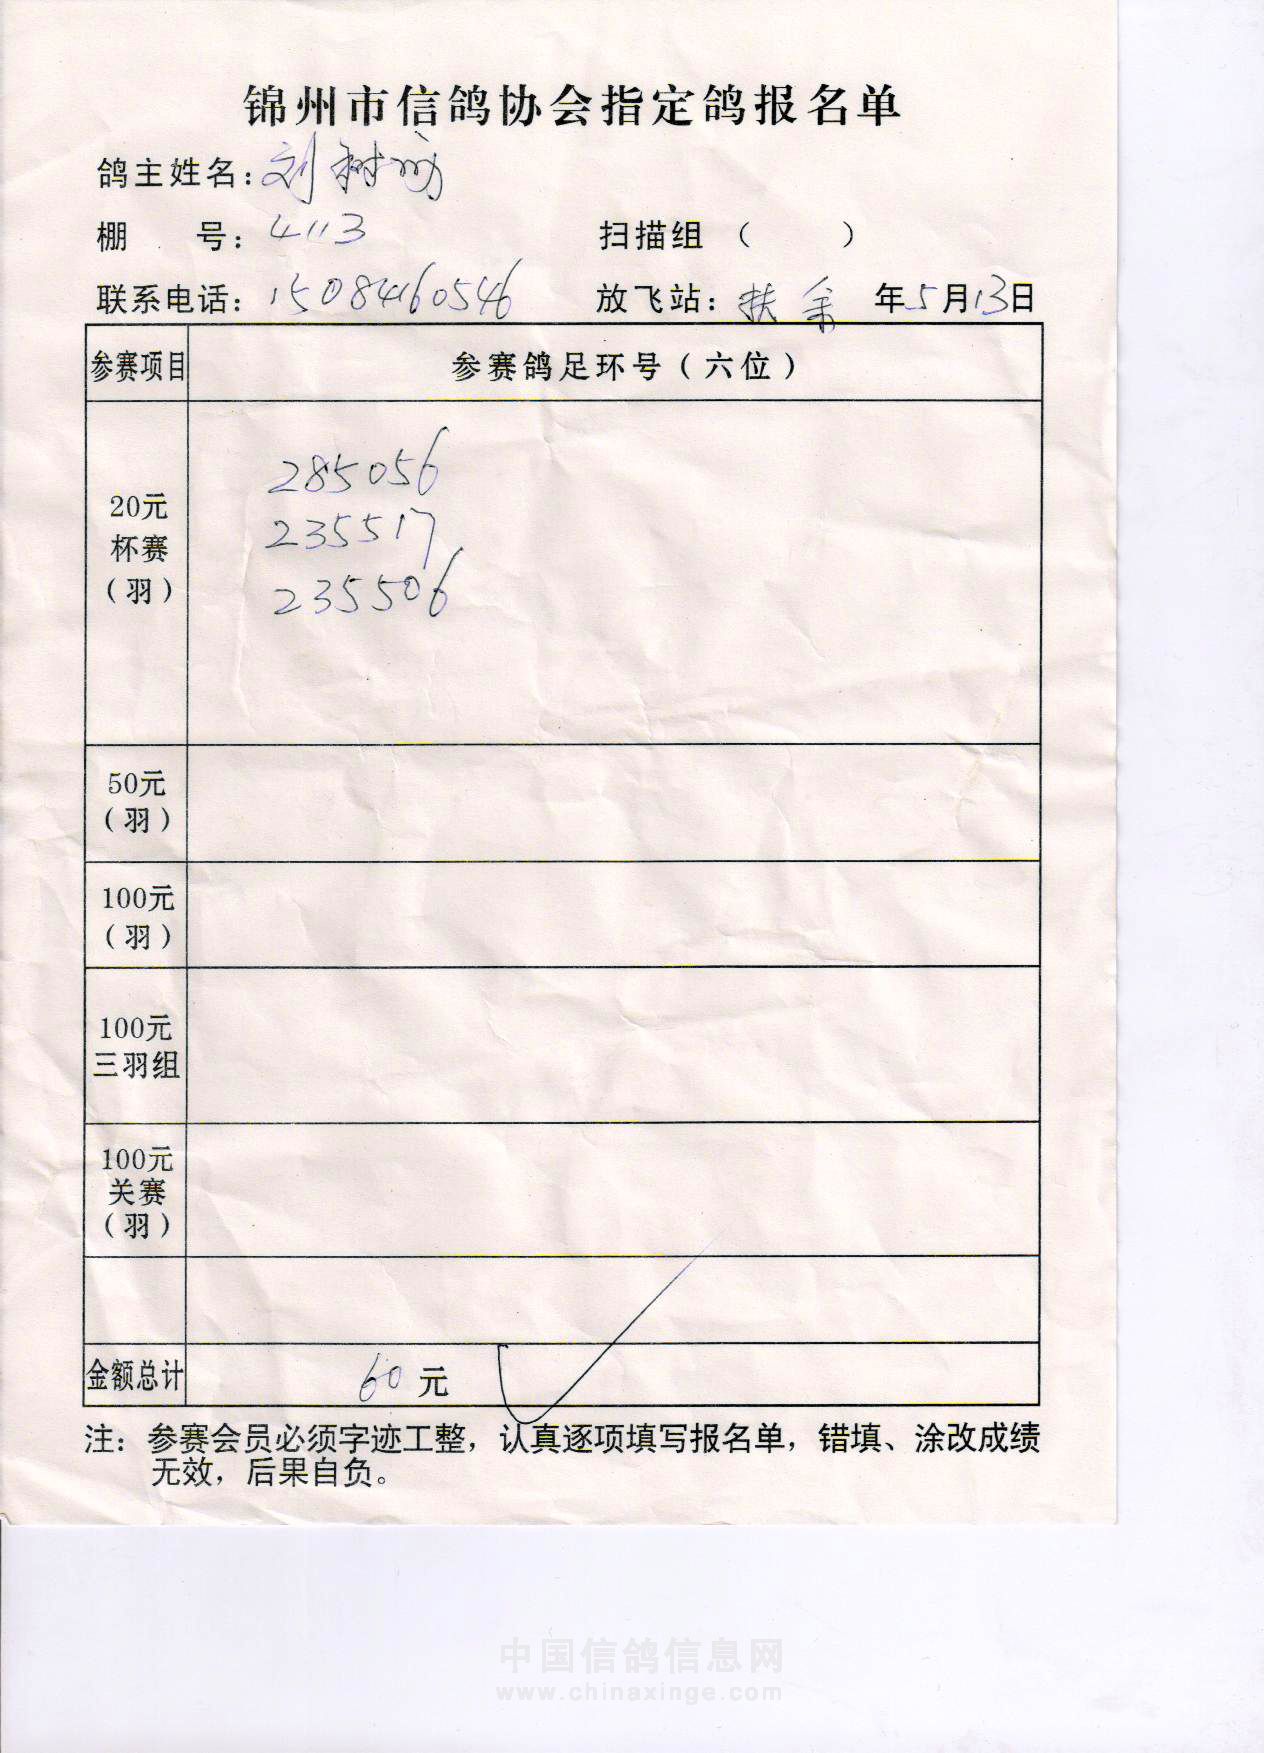 锦州市信鸽协会指定鸽报名单
鸽主姓名：刘树
棚 号：4113
扫描组（ ）
联系电话：15084160546
放飞站：扶余 年5月13日
参赛项目 参赛鸽足环号（六位）
20元
杯赛
（羽）
285056
235517
235506
50元
（羽）
100元
（羽）
100元
三羽组
100元
关赛
（羽）
金额总计 60元
注：参赛会员必须字迹工整，认真逐项填写报名单，错填、涂改成绩
无效，后果自负。
中国信鸽信息网
www.chinaxinge.com